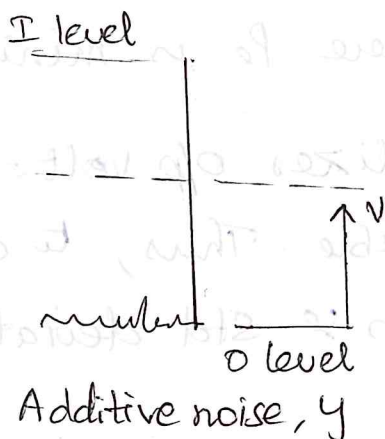 I level
V
0 level
Additive noise, y